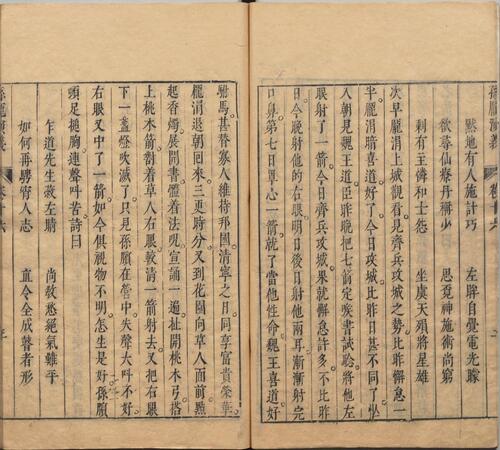 孫龐演義 卷十六
黙地有人施計巧 左眸自覺電光賒
欲尋仙療丹稀少 思覓神施術尚窮
剩有主儔和士怨 坐虞天殞將星雄
次早龐涓上城觀看見齊兵攻城之勢比昨懈怠一
半龐涓暗喜道好了今日攻城比昨日甚不同了忙
入朝見魏王道臣昨晚把七箭定喉書試騐將他左
眼射了一箭今日齊兵攻城果就懈怠許多不比昨
日今晚射他的右眼明日後日射他兩耳漸漸射完
口鼻第七日單心一箭就了當他性命魏王喜道好
駙馬甚替寡人維持邦國清寧之日同享富貴榮華
龐涓退朝回來三更時分又到花園向草人面前㸃
起香燭展開書體着法呪宣誦一遍扯開桃木弓搭
上桃木箭對着草人右眼較清一箭射去又把右眼
下一盞燈吹滅了只見孫臏在營中失聲大呌不好
右眼又中了一箭如今俱視物不明怎生是好孫臏
頭足搥胸連聲呌苦詩曰
乍道先生蔽左睛 尚敎愁絕氣難平
如何再騁窮人志 直令全成瞽者形
孫龐演義 卷十六